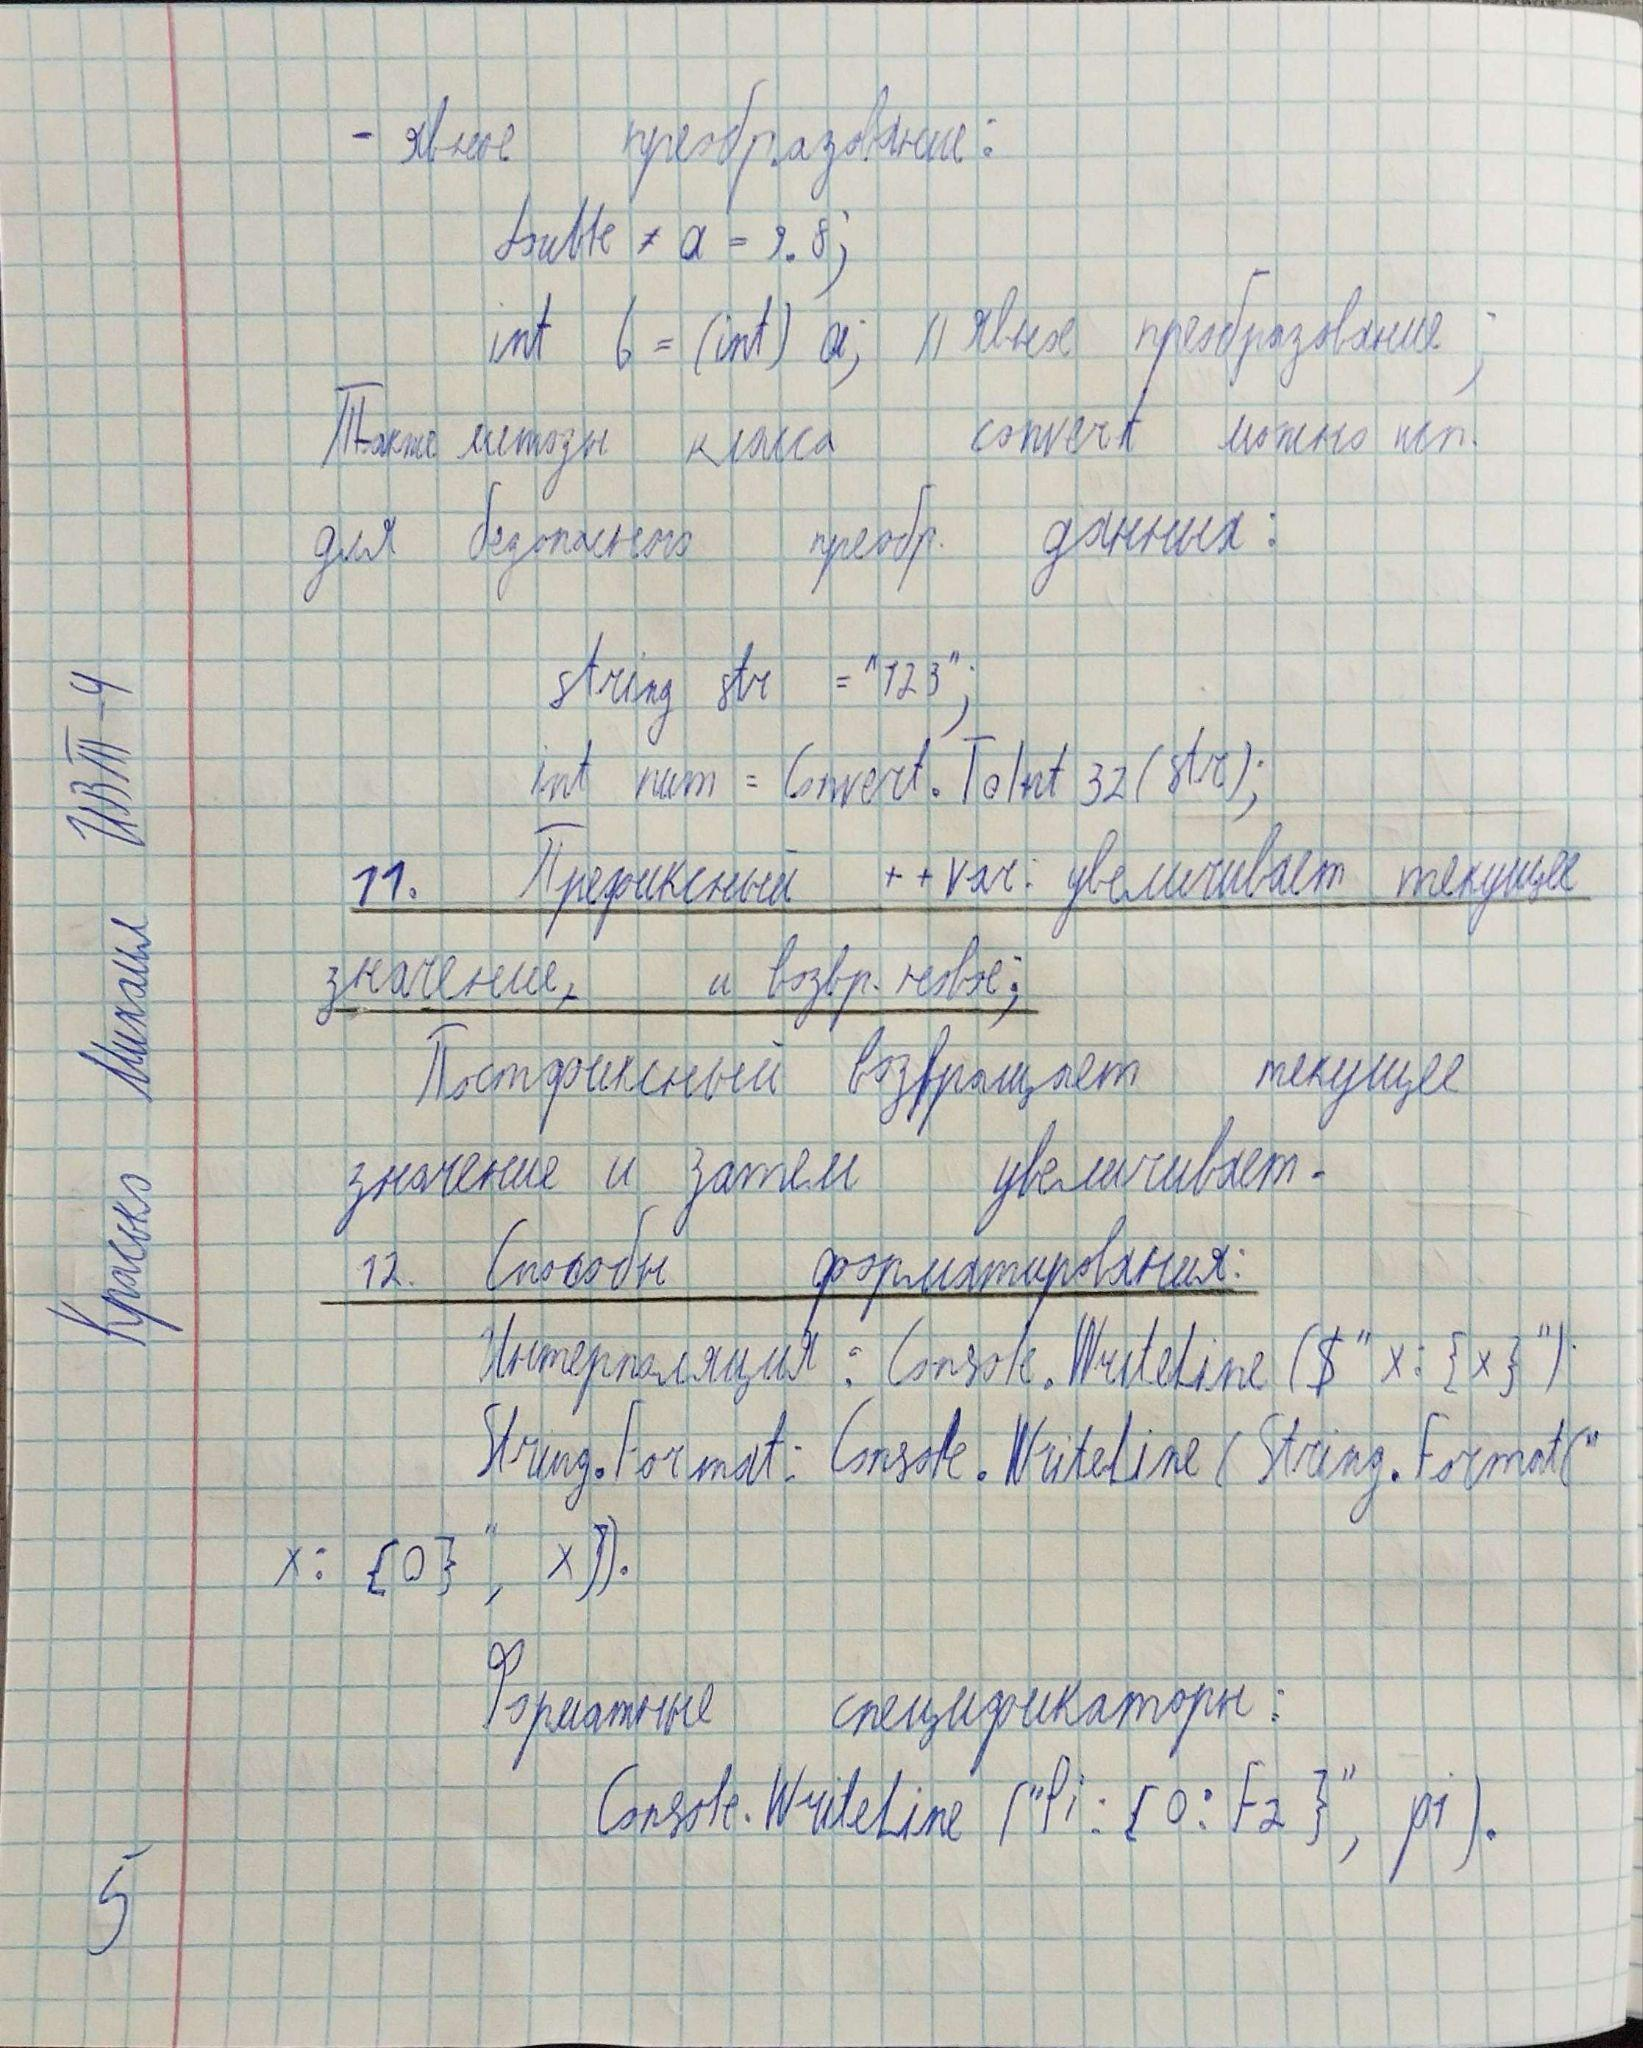 - явное преобразование:
double a = 9.8;
int b = (int) a; // явное преобразование;
Также методы класса convert можно исп.
для безопасного преобр. данных:
string str = "123";
int num = Convert.ToInt32(str);
11. Префиксный ++var: увеличивает текущее
значение, и возвр. новое;
Постфиксный возвращает текущее
значение и затем увеличивает.
12. Способы форматирования:
Интерполяция: Console.WriteLine($"x: {x}").
String.Format: Console.WriteLine(String.Format("
x: {0}", x)).
Форматные спецификаторы:
Console.WriteLine("Pi: {0:F2}", pi).
Красько Михаил ИВТ-4
5